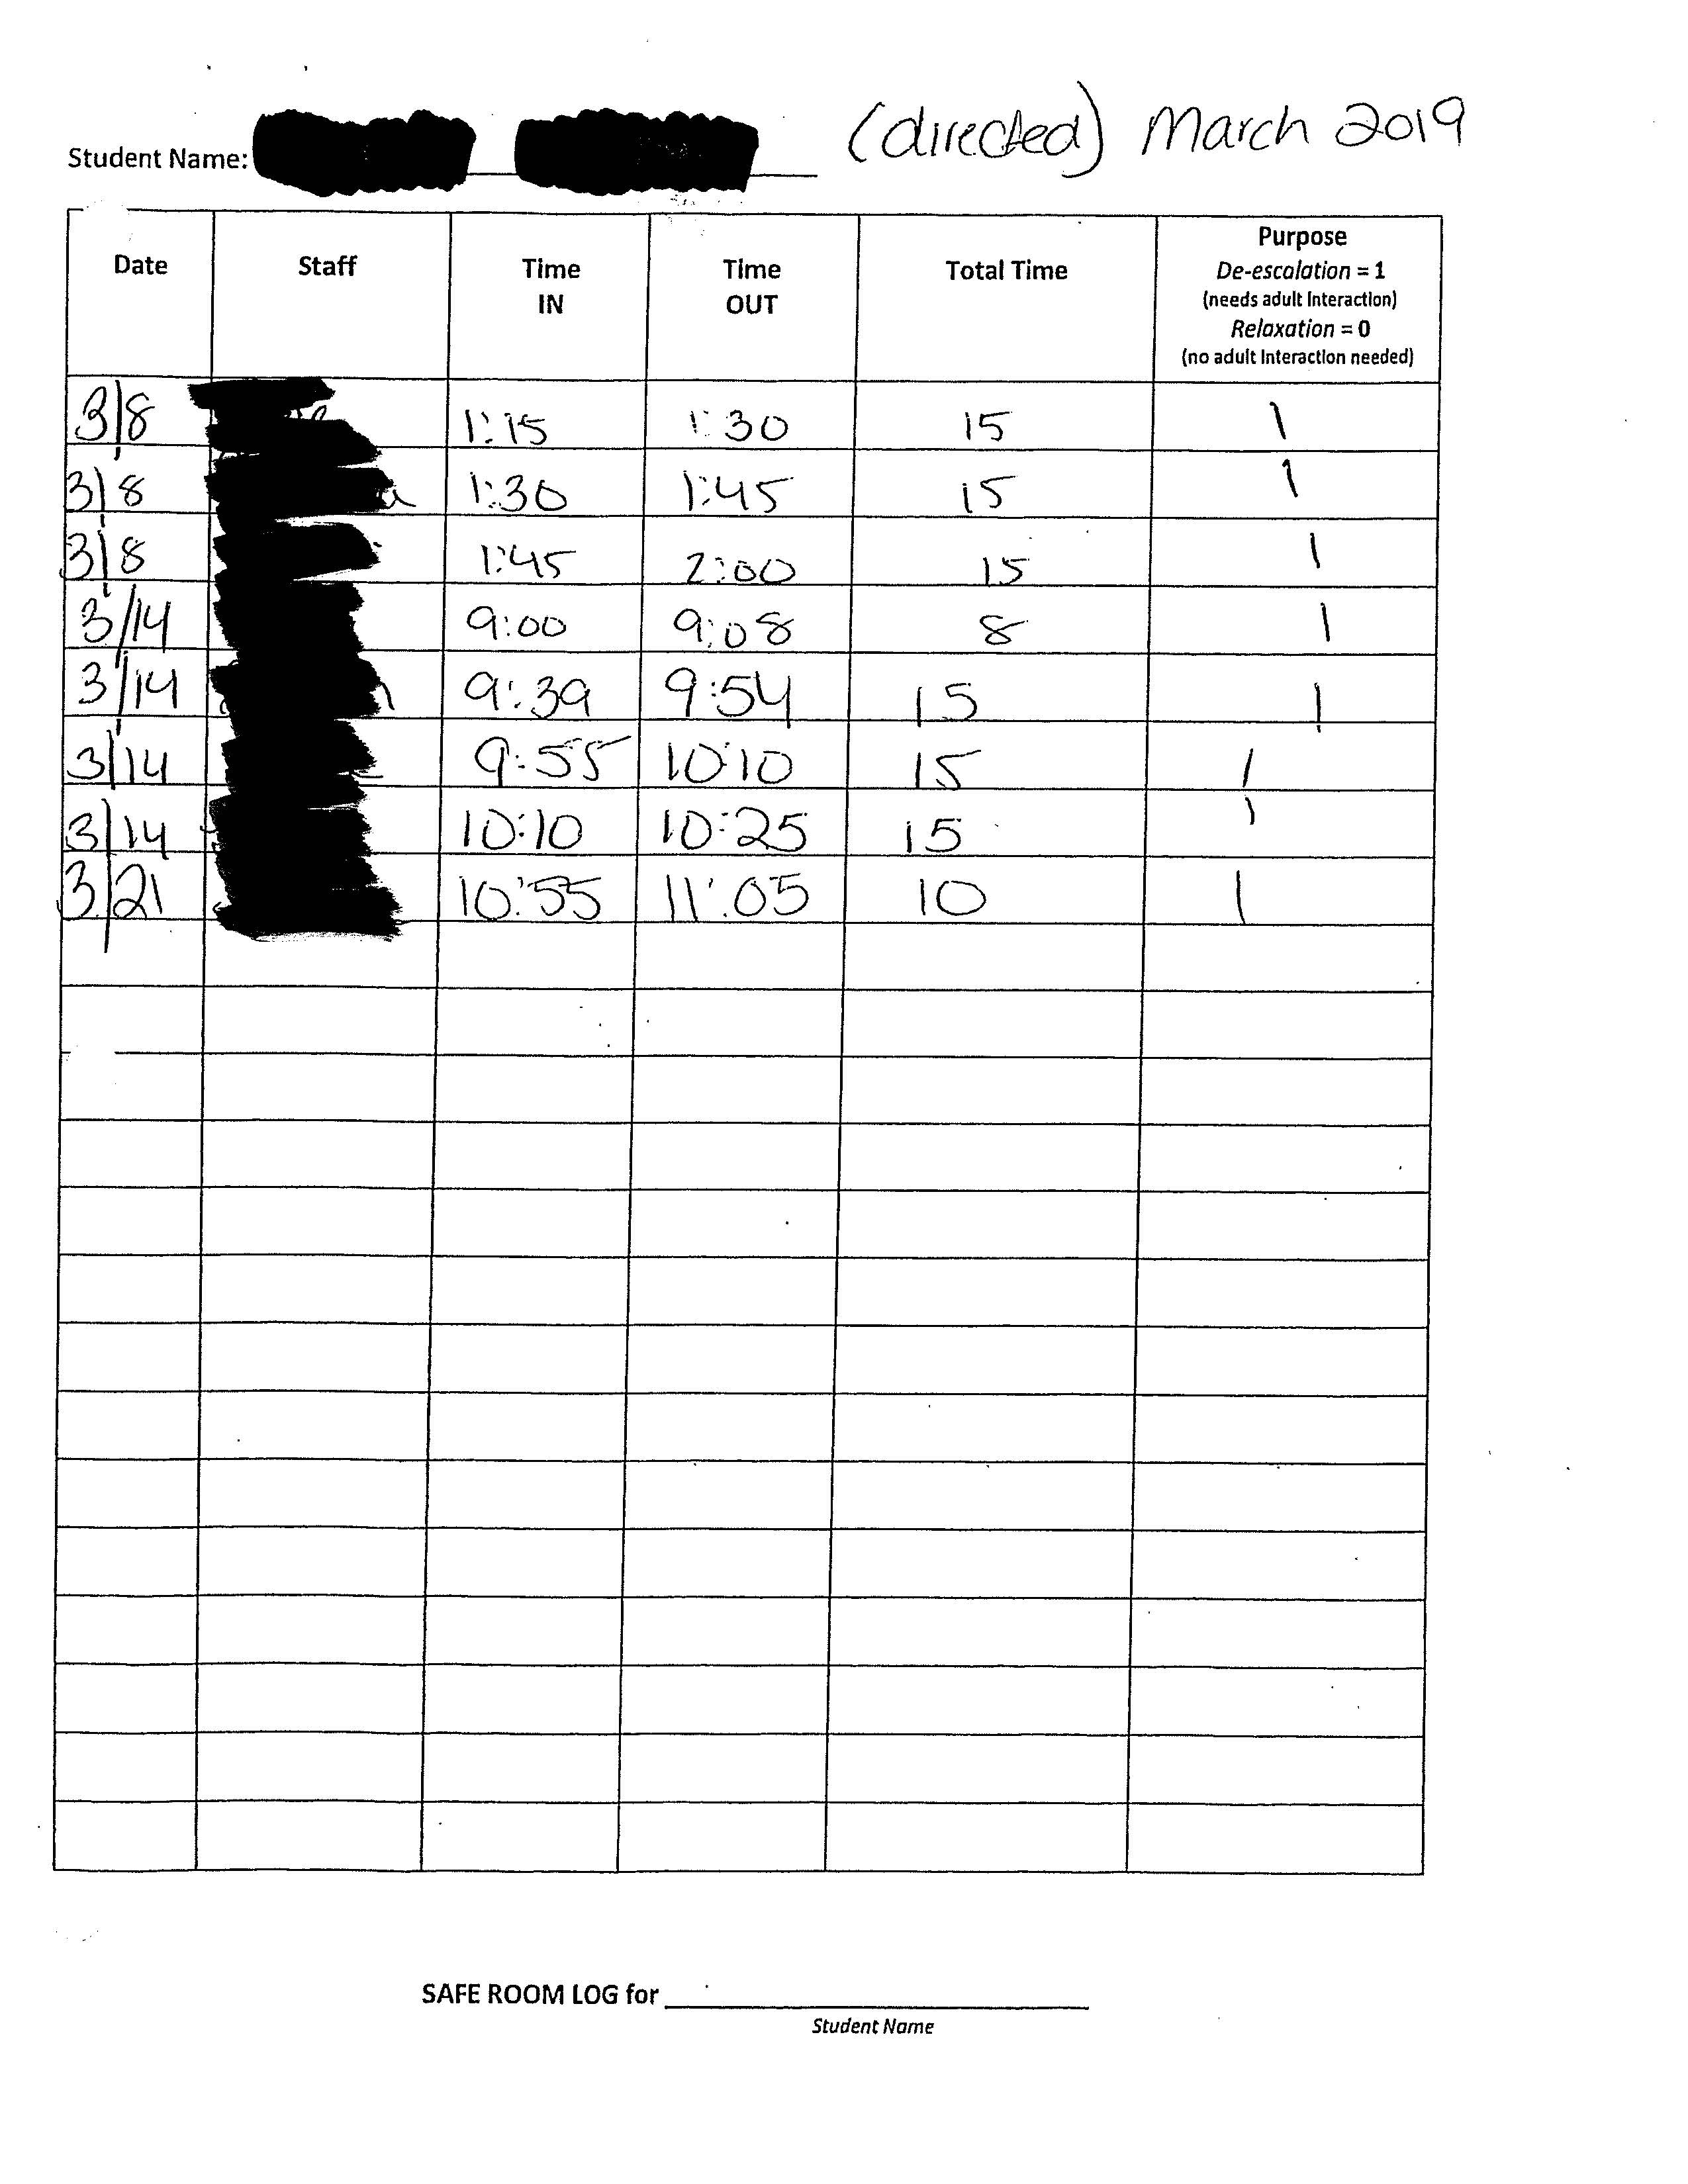 (directed) March 2019
Student Name:
Date Staff Time IN Time OUT Total Time Purpose
De-escalation = 1
(needs adult Interaction)
Relaxation = 0
(no adult Interaction needed)
3/8 1:15 1:30 15 1
3/8 1:30 1:45 15 1
3/8 1:45 2:00 15 1
3/14 9:00 9:08 8 1
3/14 9:39 9:54 15 1
3/14 9:55 10:10 15 1
3/14 10:10 10:25 15 1
3/21 10:55 11:05 10 1
SAFE ROOM LOG for
Student Name